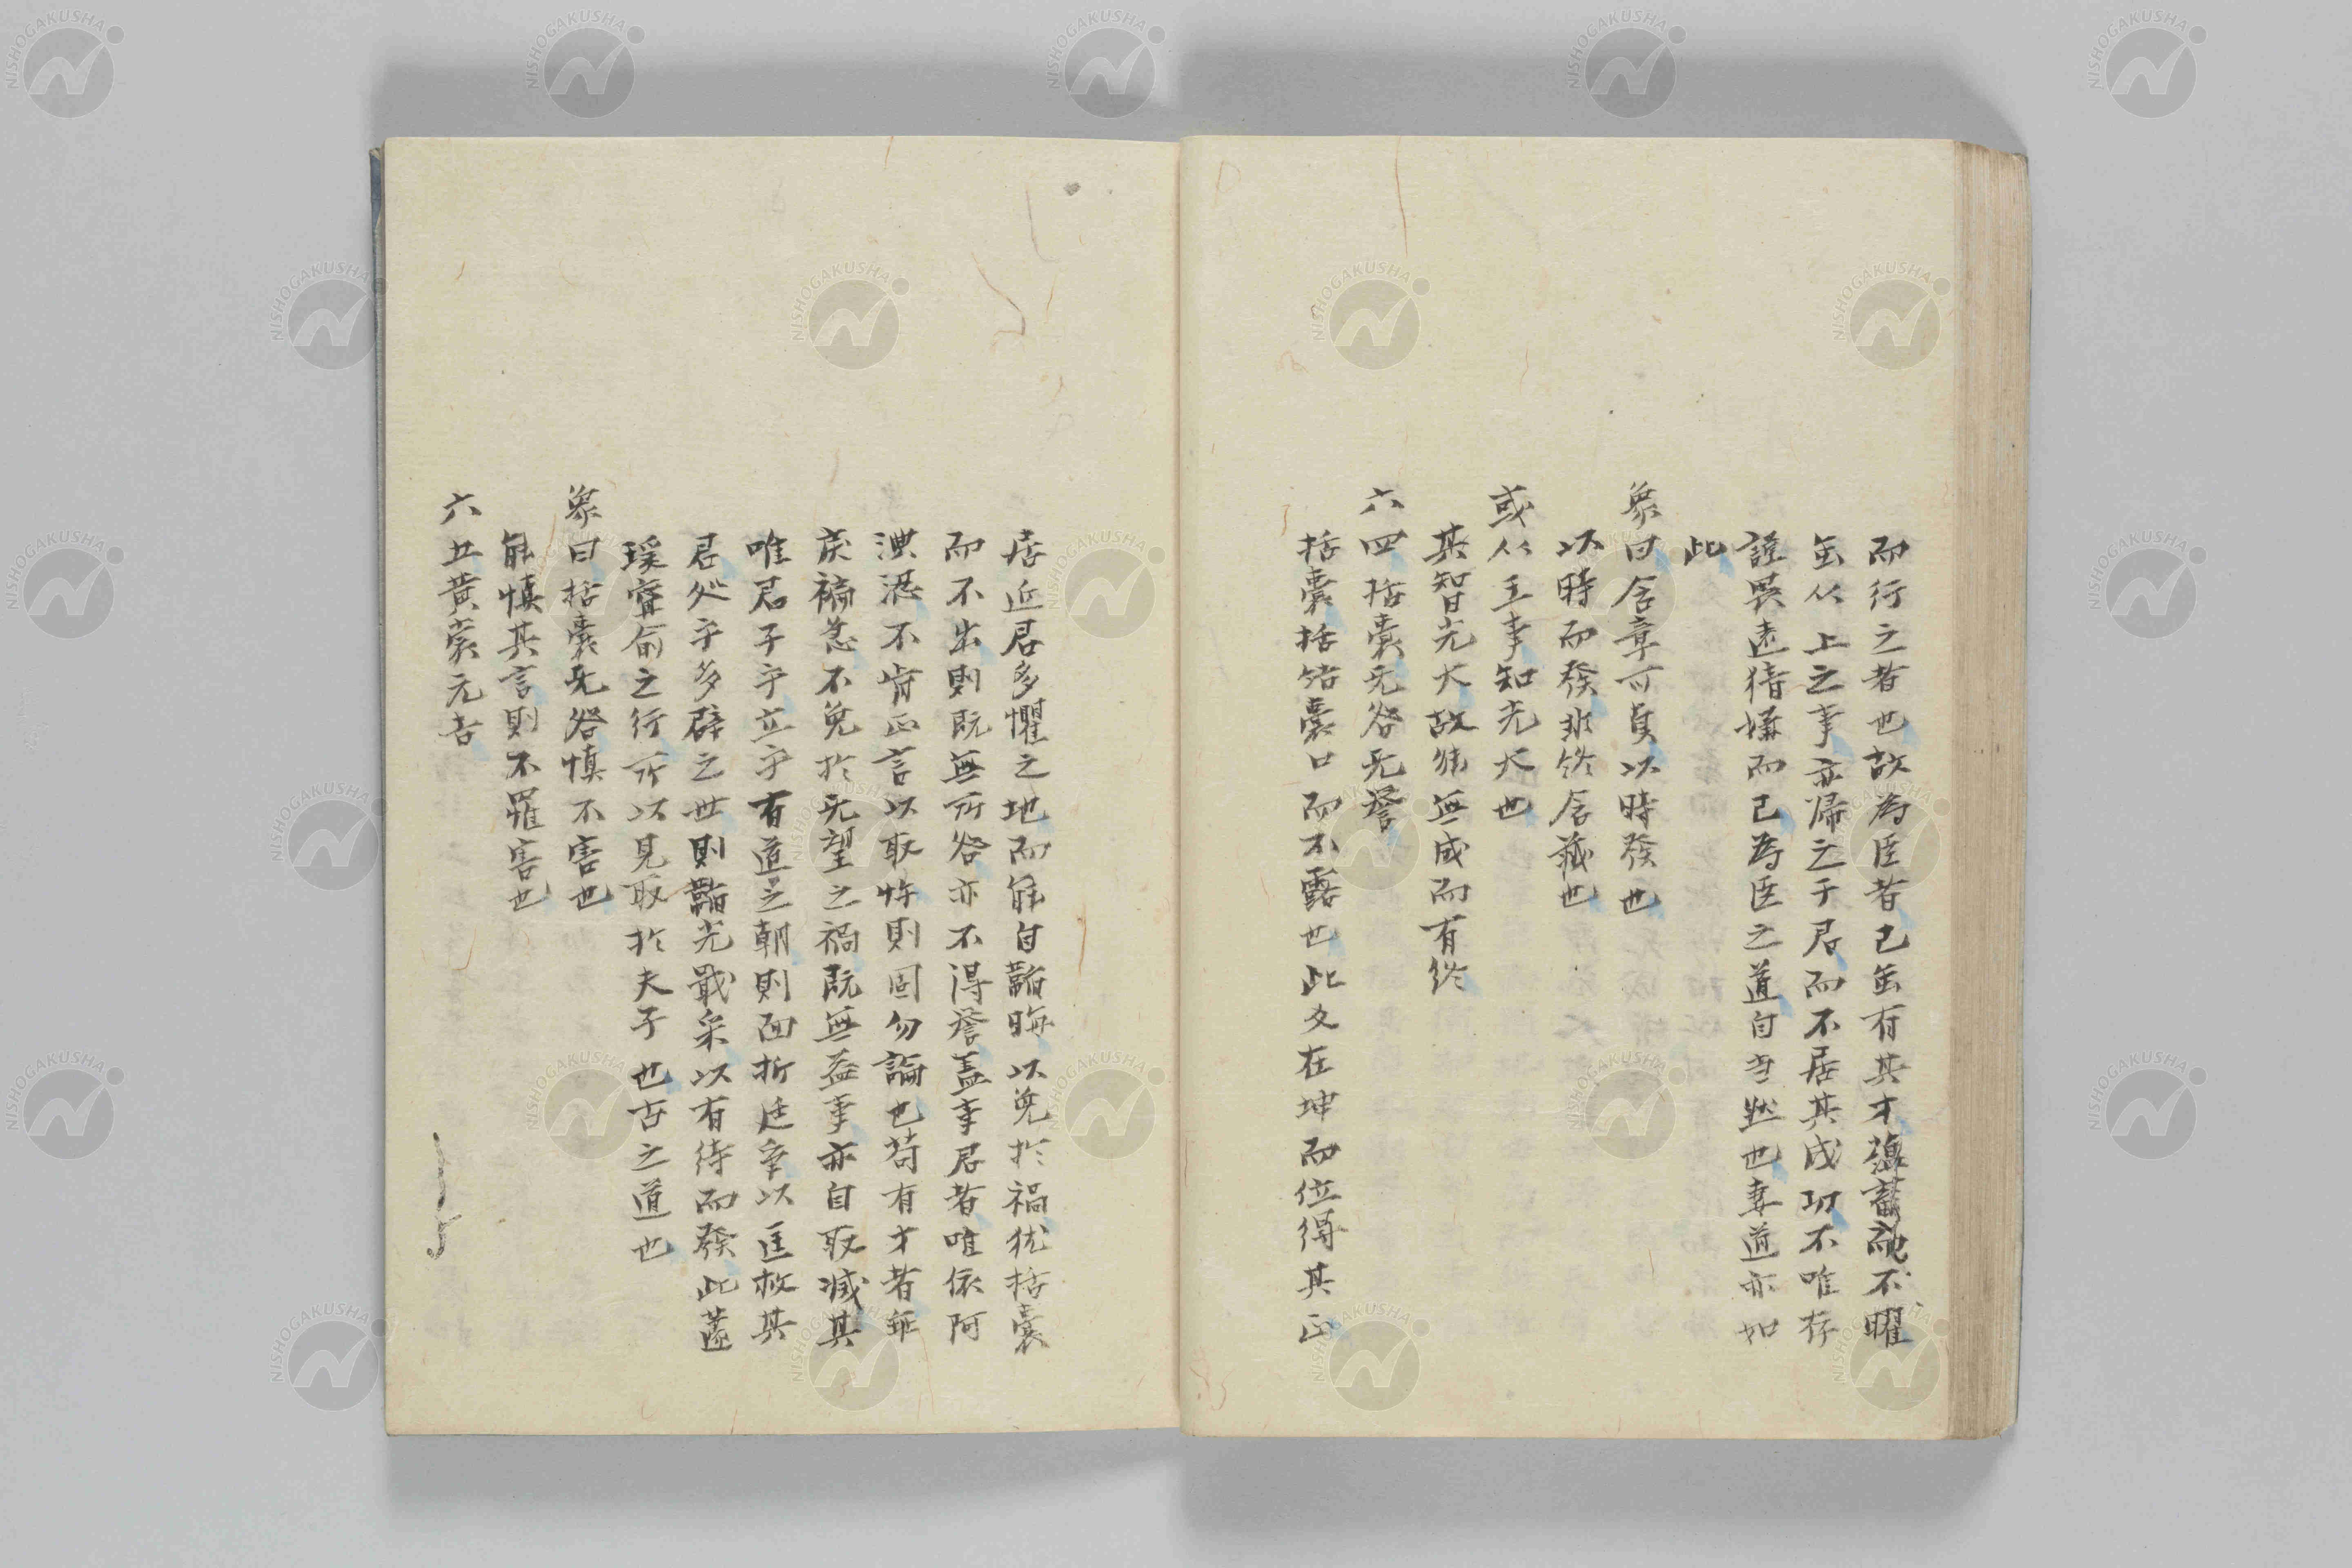 而行之者也故為臣者己虽有其才蘊蓄而不曜
虽从上之事亦帰之于君而不居其成功不唯存
證畏遠猜嫌而已為臣之道自当然也妻道亦如
此
象曰含章可貞以時發也
以時而發非終含藏也
或从王事知光大也
其智光大故能無成而有終
六四括囊无咎无誉
括囊括结囊口而不露也此爻在坤而位得其正
居近君多懼之地而能自韜晦以免於禍犹括囊
而不出則既無所咎亦不得誉盖事君者唯依阿
淟涊不肯正言以取忤則固勿論也苟有才者乖
戾褊急不免於无望之禍既無益事亦自取滅其
唯君子乎立乎有道之朝則面折廷争以匡救其
君処乎多辟之世則韜光戢采以有待而發此蘧
瑗甯俞之行所以見取於夫子也古之道也
象曰括囊无咎慎不害也
能慎其言則不罹害也
六五黄裳元吉
NISHOGAKUSHA